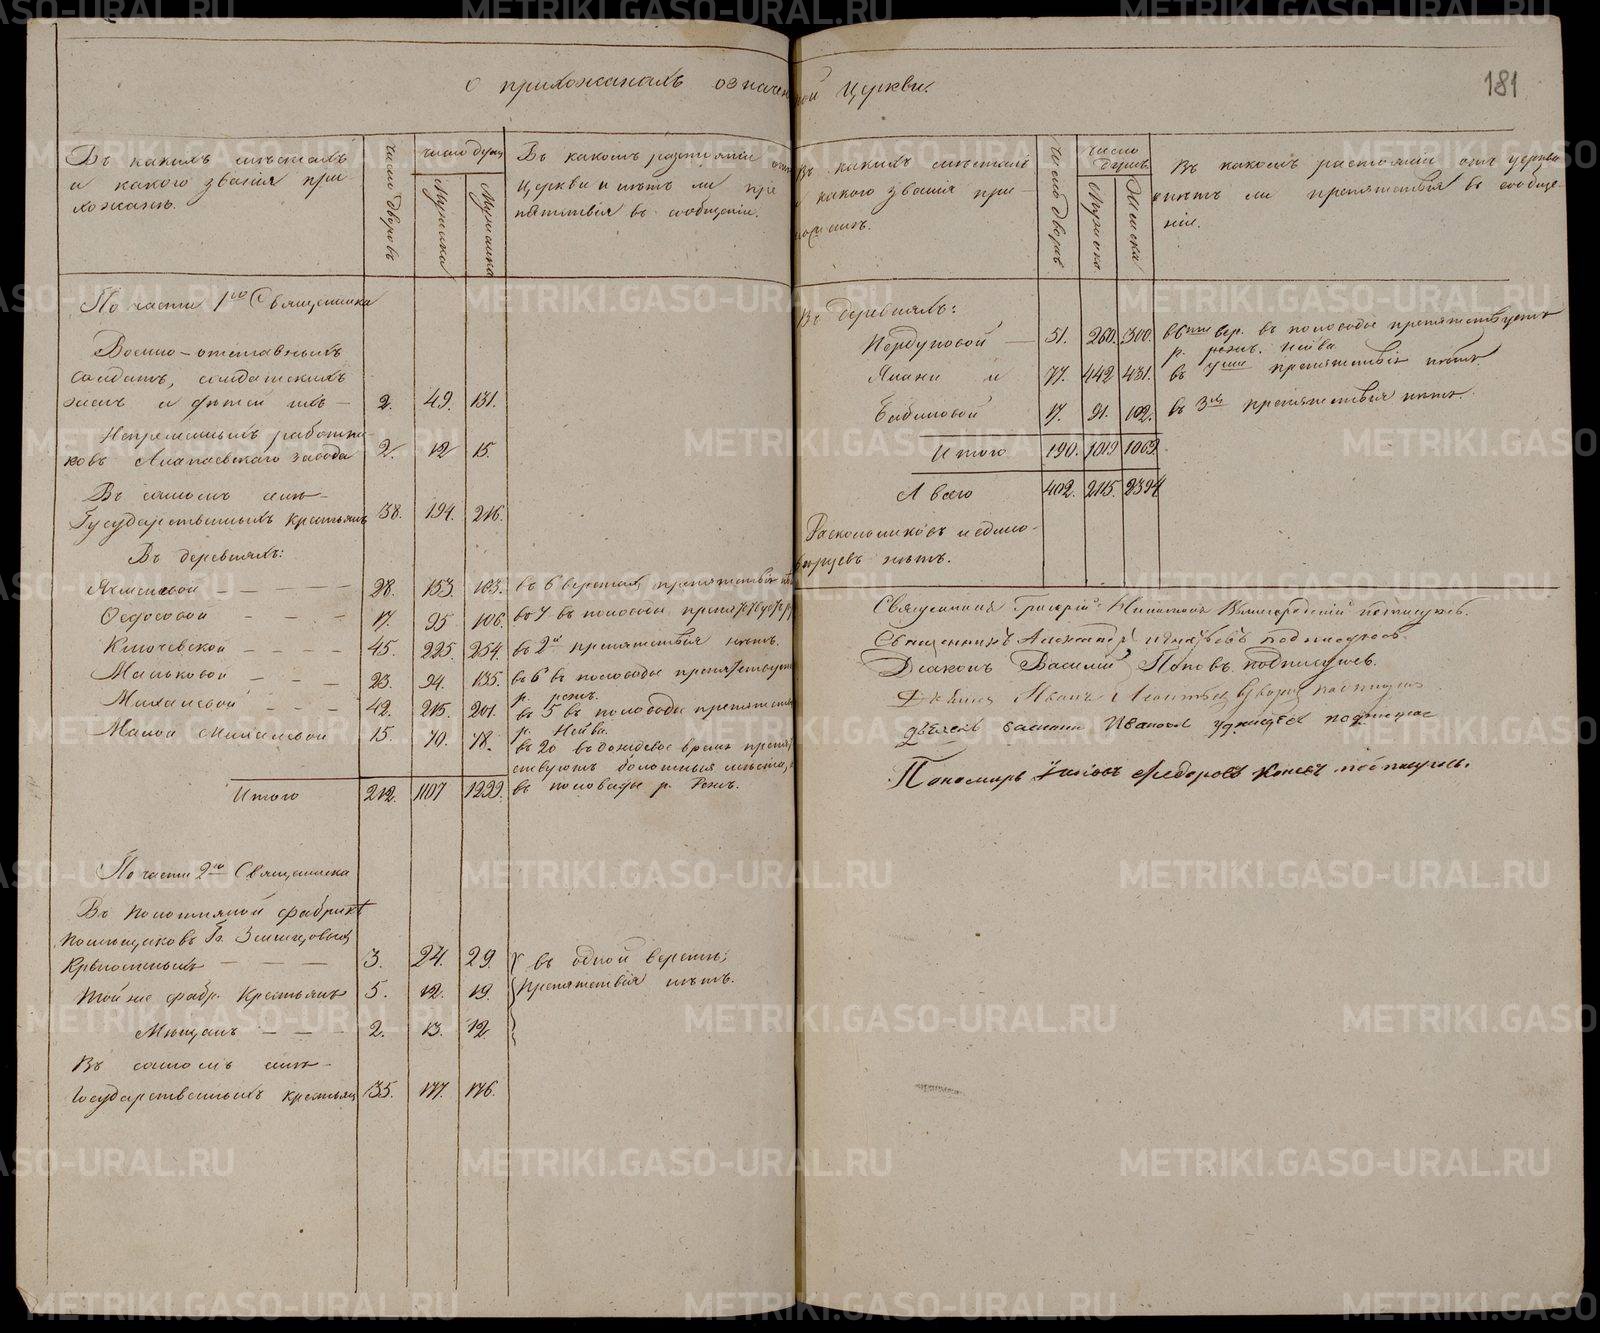 о прихожанахъ означен
ной Церкви.
181
Въ какихъ мѣстахъ
и какого званія при-
хожанъ.
число дворовъ
число душъ
Мужеска
Въ какомъ разстояніи отъ
Церкви и нѣтъ ли пре
пятствія въ сообщеніи.
По части 1го Священника
Военно-отставныхъ
Солдатъ, солдатскихъ
женъ и дѣтей ихъ – 2. 49. 131.
Непремѣнныхъ работни-
ковъ Алапаевскаго завода 2. 12 15.
Въ самомъ селѣ –
Государственныхъ крестьянъ 38. 194. 216.
Въ деревняхъ:
Ячменевой – – – – 28. 153. 163. въ 6 верстахъ препятствія
Федосовой – – – 17. 95. 106.
Ключевской – – – – 45. 225. 254. въ 2й препятствія нѣтъ.
Маньковой – – – 23. 94. 135. въ 6 въ половоды препятствуетъ
р. режъ.
Михалевой – – – 42. 215. 201. въ 5 въ половоды
р. Нейва.
Малой Михалевой 15. 70. 78. въ 20 въ дождевое время
ствуютъ болотныя мѣста,
въ половоды р. Режъ.
Итого 212. 1107 1299.
По части 2го Священника
Въ полотняной фабрикѣ
помѣщиковъ Гг.
Крѣпостныхъ – – – 3. 24. 29. въ одной верстѣ;
Той же фабр. Крестьянъ 5. 12. 19. Препятствія нѣтъ.
Мѣщанъ – – – 2. 13. 12.
Въ самомъ селѣ –
Государственныхъ крестьянъ 35. 177. 176.
Въ какихъ мѣстахъ
и какого званія при-
хожанъ.
число дворовъ
число душъ.
Мужеска.
Женска
Въ какомъ разстояніи отъ церкви
и нѣтъ ли препятствія въ сообще-
ніи.
Въ деревняхъ:
51. 260. 300. въ половоды препятствуетъ
р. режъ. Нейва.
77. 442 431. препятствія нѣтъ.
Бабиновой 17. 91. 102. въ 3хъ препятствія нѣтъ.
Итого 190. 1019 1069.
А всего 402. 2115. 2394
Раскольниковъ и едино-
вѣрцевъ нѣтъ.
Священникъ Григорій подписуюсь.
Священникъ Александръ Игнатьевъ подписуюсь
Діаконъ Василій Поповъ подписуюсь.
Иванъ
Иванов
Пономарь Федоровъ подписуюсь.
METRIKI.GASO-URAL.RU